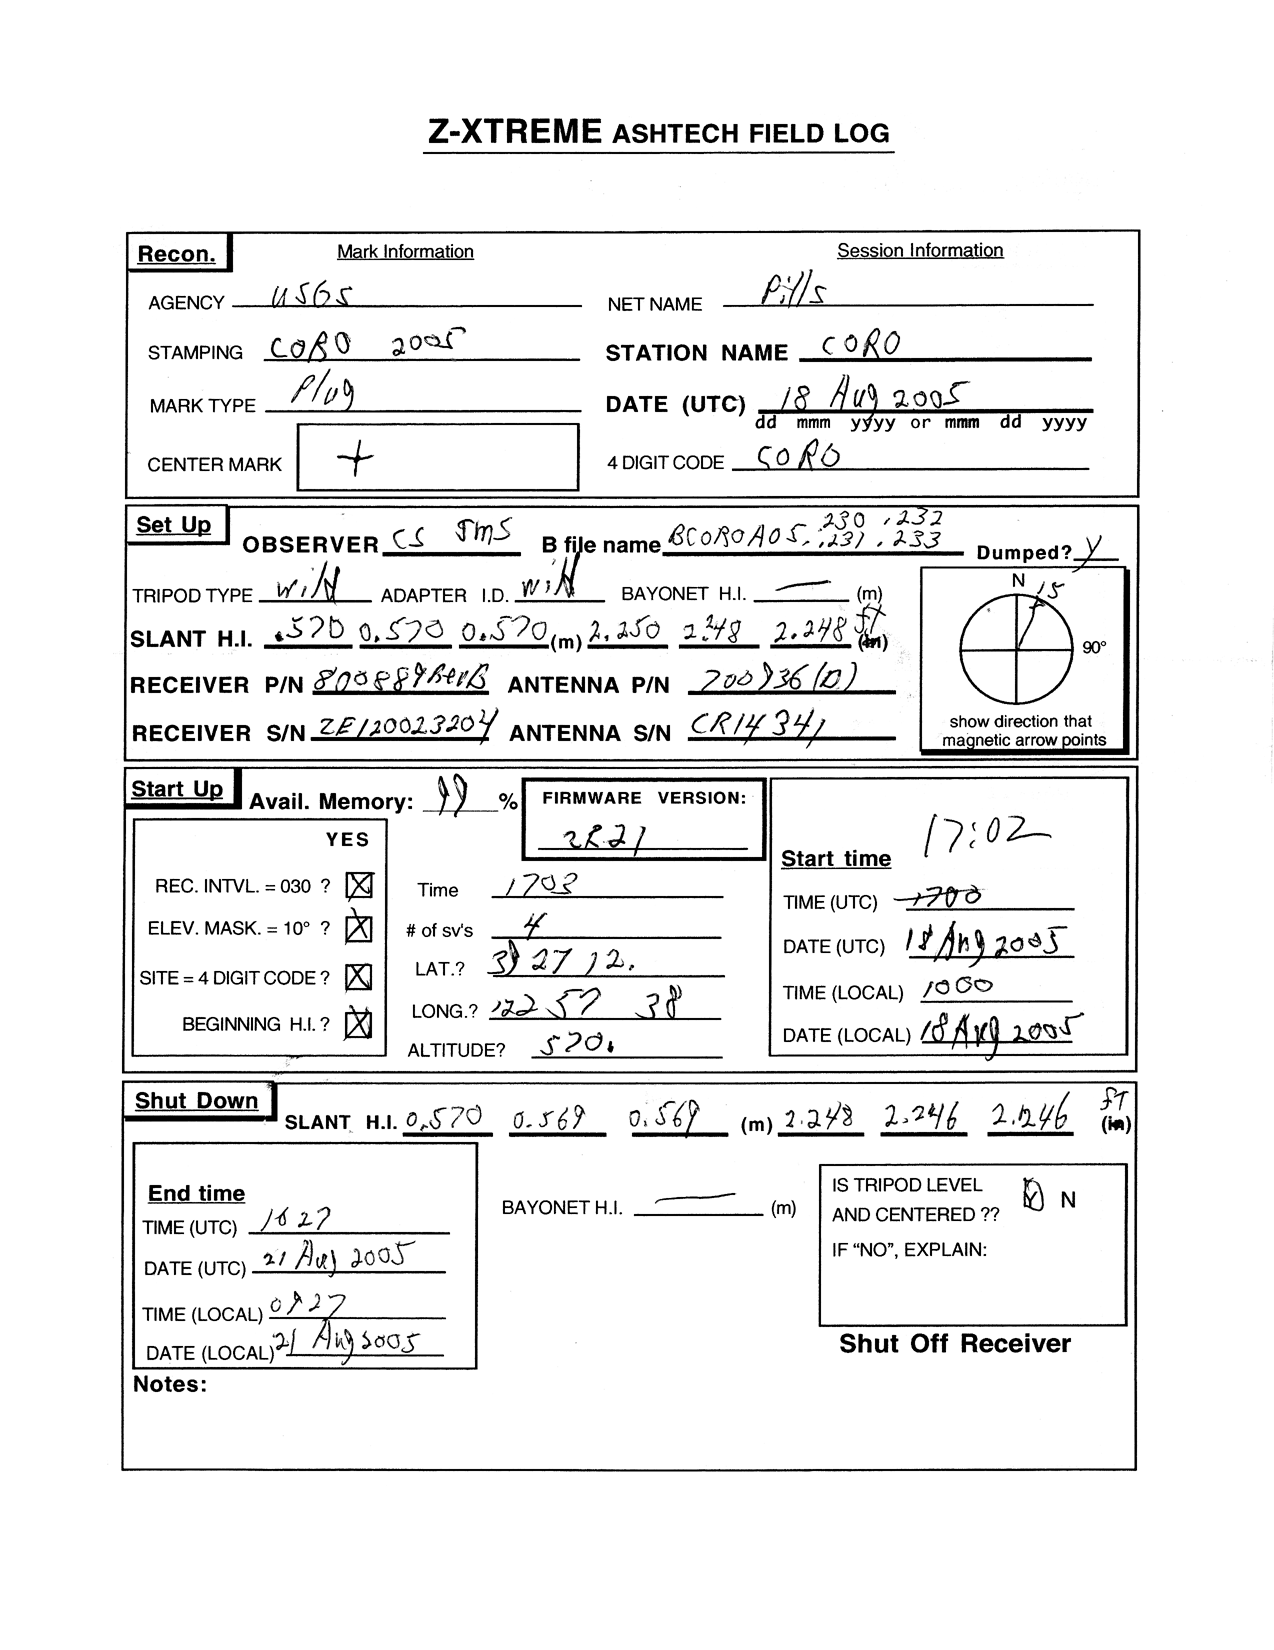 Z-XTREME ASHTECH FIELD LOG
Recon. Mark Information Session Information
AGENCY USGS NET NAME Pills
STAMPING CORO 2005 STATION NAME CORO
MARK TYPE Plug DATE (UTC) 18 Aug 2005
dd mmm yyyy or mmm dd yyyy
CENTER MARK + 4 DIGIT CODE CORO
Set Up OBSERVER CS JMS B file name BCOROA05. .230 .232 .231 .233 Dumped? Y
TRIPOD TYPE Wild ADAPTER I.D. Wild BAYONET H.I. — (m)
N 15
SLANT H.I. .570 0.570 0.570 (m) 2.250 2.248 2.248 ft (in)
90°
RECEIVER P/N 800889RevB ANTENNA P/N 700936(D)
show direction that
magnetic arrow points
RECEIVER S/N ZE120023204 ANTENNA S/N CR14341
Start Up Avail. Memory: 99 % FIRMWARE VERSION:
ZR21
17:02
Start time
YES
REC. INTVL. = 030 ? X Time 1703
TIME (UTC) 1700
ELEV. MASK. = 10° ? X # of sv's 4
DATE (UTC) 18 Aug 2005
SITE = 4 DIGIT CODE ? X LAT.? 39 27 12.
TIME (LOCAL) 1000
BEGINNING H.I. ? X LONG.? 122 57 38
DATE (LOCAL) 18 Aug 2005
ALTITUDE? 520.
Shut Down SLANT H.I. 0.570 0.569 0.569 (m) 2.248 2.246 2.246 fT (in)
End time
TIME (UTC) 1627
DATE (UTC) 21 Aug 2005
TIME (LOCAL) 0927
DATE (LOCAL) 21 Aug 2005
BAYONET H.I. — (m)
IS TRIPOD LEVEL
AND CENTERED ?? Y N
IF "NO", EXPLAIN:
Shut Off Receiver
Notes: